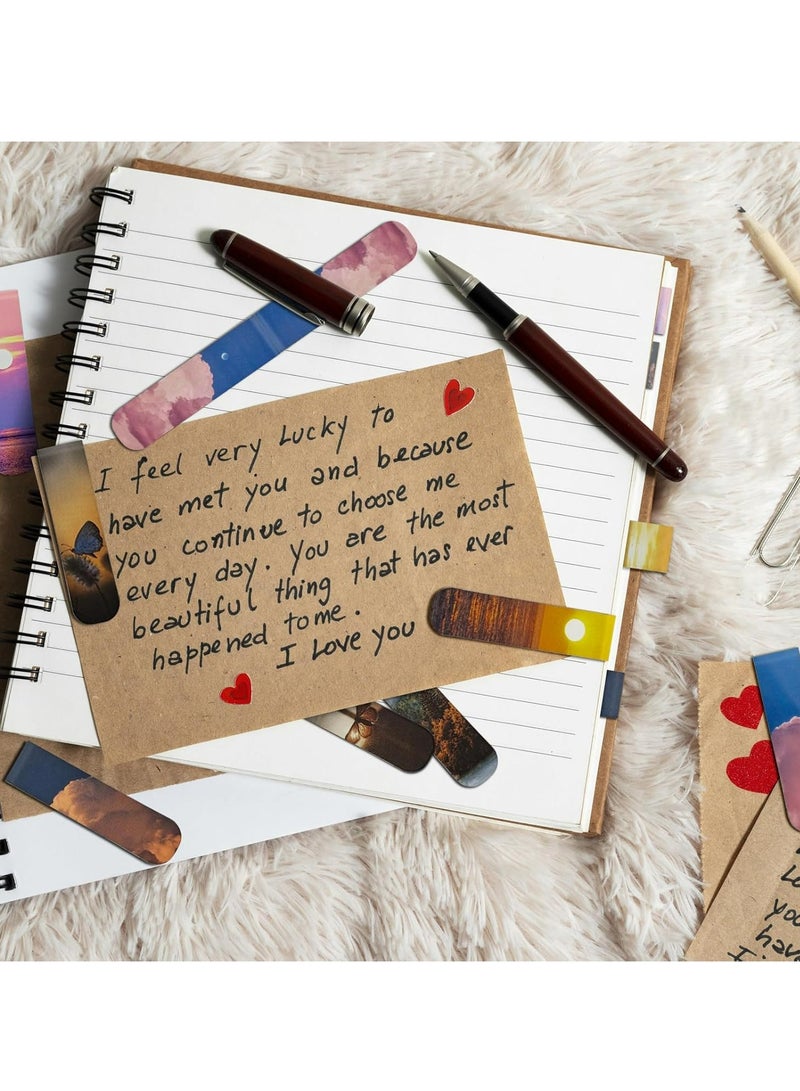 I feel very Lucky to
have met you and because
you continue to choose me
every day. You are the most
beautiful thing that has ever
happened to me.
I Love you
I